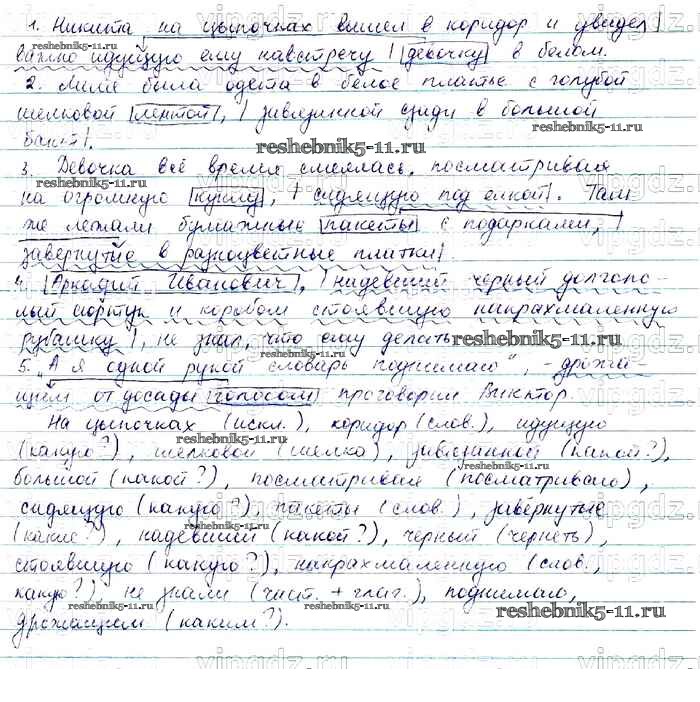 1. Никита на цыпочках вышел в коридор и увидел |
важно идущую ему навстречу | девочку в белом.
2. Лиля была одета в белое платье с голубой
шелковой лентой, | завязанной сзади в большой
бант|.
3. Девочка всё время смеялась, посматривая
на огромную куклу, | сидящую под елкой|. Там
же лежали бумажные пакеты с подарками, |
завернутые в разноцветные платки|.
4. Аркадий Иванович, | надевший черный долгопо-
лый сюртук и коробом стоявшую накрахмаленную
рубашку|, не знал, что ему делать
5. „А я одной рукой словарь поднимаю", – дрожа-
щим от досады голосом проговорил Виктор.
На цыпочках (искл.), коридор (слов.), идущую
(какую?), шелковой (шелка), завязанной (какой?),
большой (какой?), посматривая (посматриваю),
сидящую (какую?), пакеты (слов.), завёрнутые
(какие?), надевший (какой?), черный (чернеть),
стоявшую (какую?), накрахмаленную (слов.,
какую?), не знали (част. + глаг.), поднимаю,
дрожащим (каким?).
reshebnik5-11.ru
vipgdz.ru